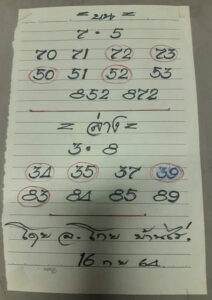 = บน =
7 • 5
70 71 72 73
50 51 52 53
852 872
= ล่าง =
3 • 8
34 35 37 39
83 84 85 89
โดย อ. โทย บ้านไร่.
16 กย 64.